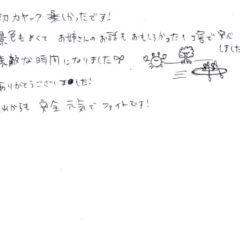 初カヤック 楽しかったです!
景色もよくて お姉さんのお話もおもしろかったし 丁寧で安心しました
素敵な時間になりました
ありがとうございました!
これからも 安全 元気で ファイトです!